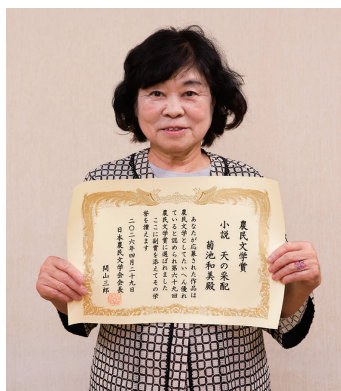 農民文学賞
小説 天の采配
菊池和美殿
あなたが応募された作品は
農民文学としてたいへん優れ
ていると認められ第六十九回
農民文学賞に選ばれました
ここに副賞を添えてその栄
誉を讃えます
二〇二六年四月二十九日
日本農民文学会会長
関山三郎